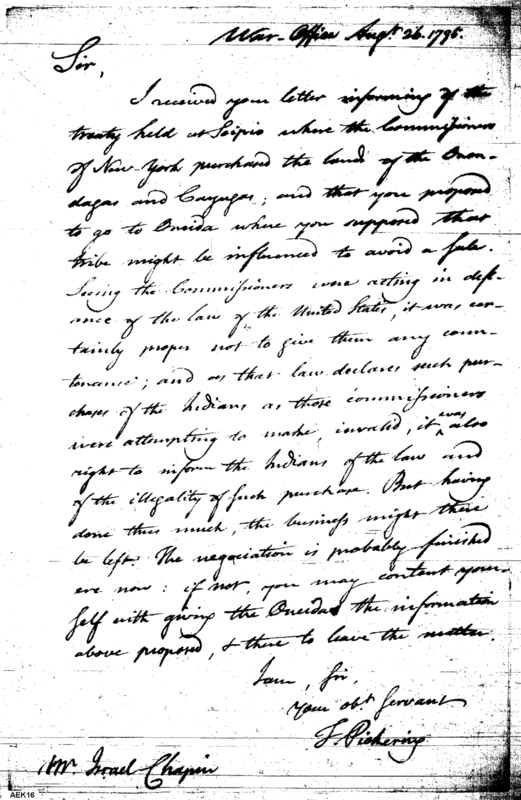 War-Office Augt. 26. 1795.
Sir,
I received your letter informing of the
treaty held at Scipio where the Commissioners
of New-York purchased the lands of the Onon-
dagas and Cayugas; and that you proposed
to go to Oneida where you supposed that
tribe might be influenced to avoid a sale.
Seeing the Commissioners were acting in defi-
ance of the law of the United States, it was cer-
tainly proper not to give them any coun-
tenance; and as that law declares such pur-
chases of the Indians as those commissioners
were attempting to make, invalid, it was also
right to inform the Indians of the law and
of the illegality of such purchase. But having
done thus much, the business might there
be left. The negociation is probably finished
ere now: if not, you may content your-
self with giving the Oneidas the information
above proposed, & there to leave the matter.
I am, Sir,
your obt. servant
T. Pickering
Mr. Israel Chapin
AEK16